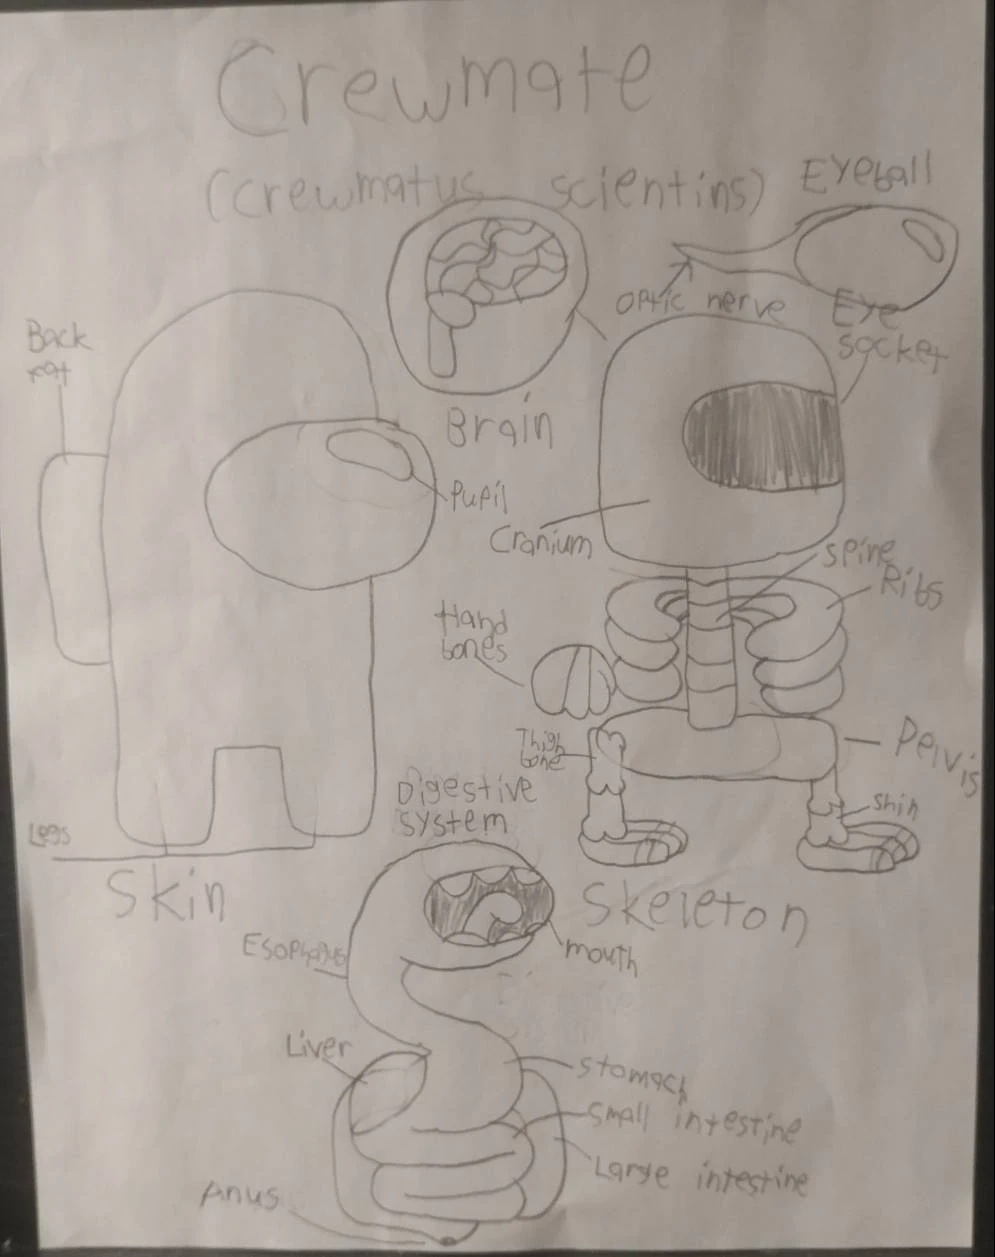 Crewmate
(crewmatus scientins)
Eyeball
optic nerve
Eye
socket
Back
Brain
Pupil
Cranium
spine
Ribs
Hand
bones
Thigh
bone
Pelvis
shin
Legs
Skin
Skeleton
Digestive
system
Esophagus
mouth
Liver
stomach
Small intestine
Large intestine
Anus